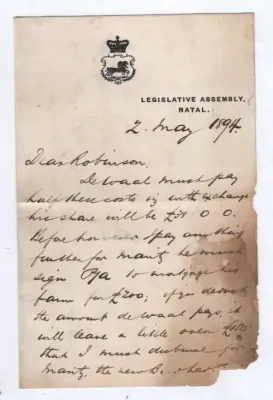 LEGISLATIVE ASSEMBLY,
NATAL.
2. May 1894.
Dear Robinson.
De Waal must pay
half these costs ie with exchange
his share will be £31 0 0.
Before however I pay anything
further for Maritz he must
sign P/A to mortgage his
farm for £200; if you deduct
the amount de Waal pays, it
will leave a little over
that I must disburse for
Maritz, the new